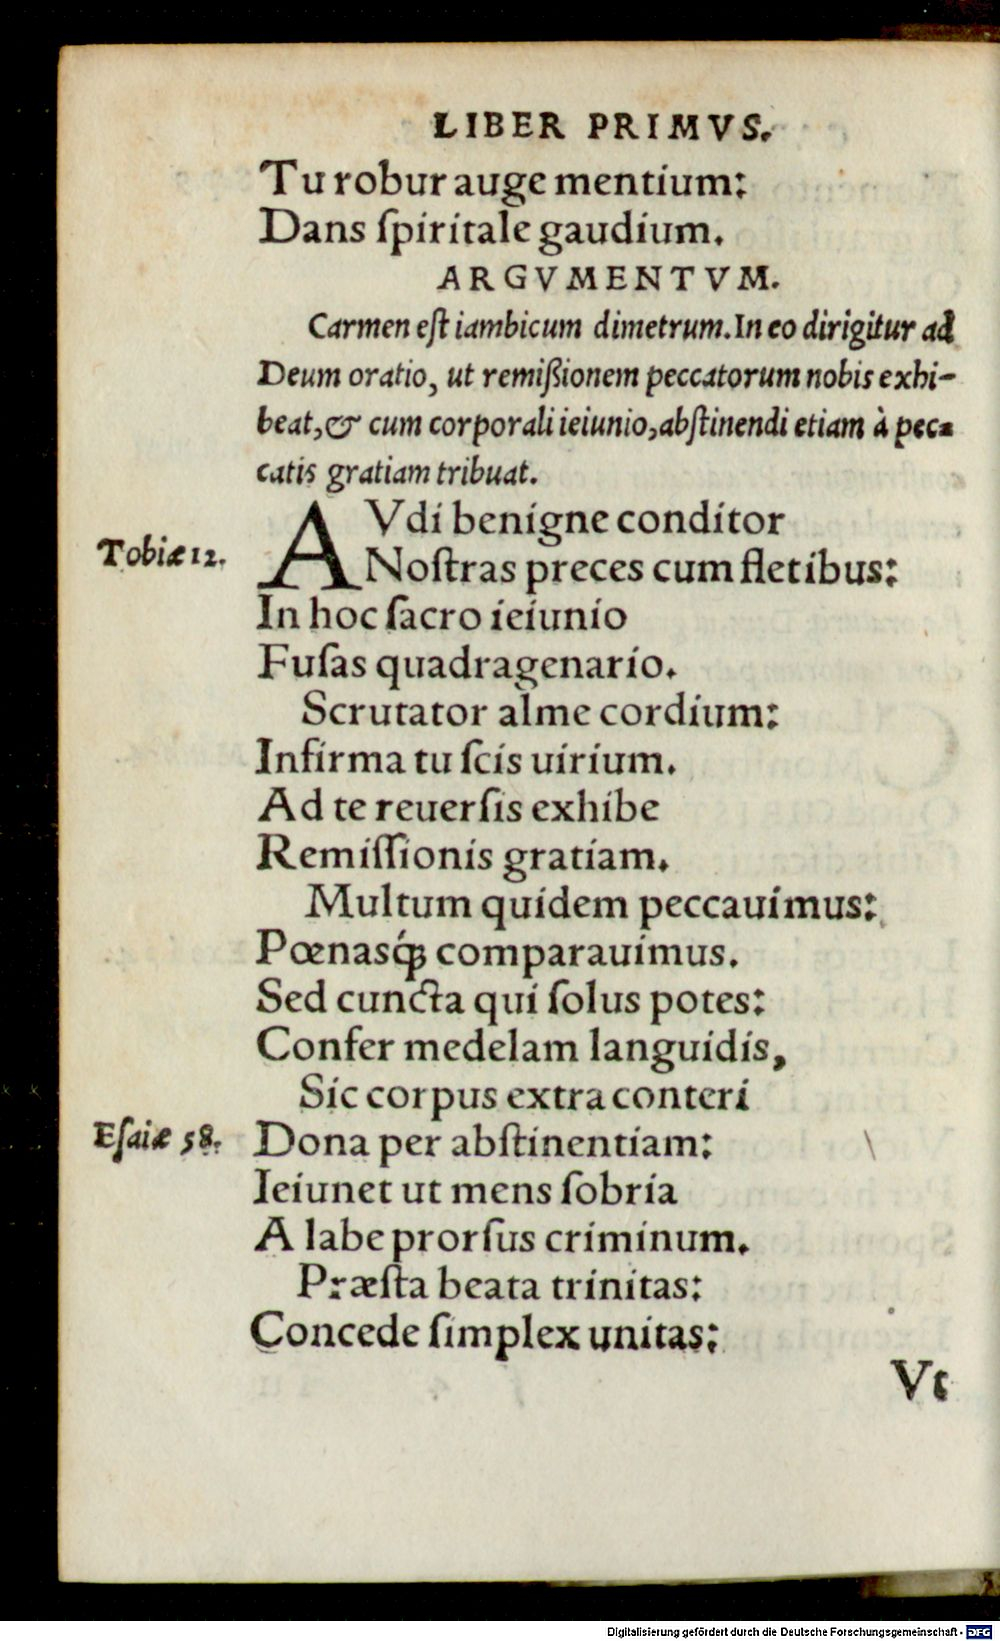 LIBER PRIMVS.
Tu robur auge mentium:
Dans ſpiritale gaudium.
ARGVMENTVM.
Carmen eſt iambicum dimetrum. In eo dirigitur ad
Deum oratio, ut remiſsionem peccatorum nobis exhi-
beat, & cum corporali ieiunio, abſtinendi etiam à pec-
catis gratiam tribuat.
AVdi benigne conditor
Tobiæ 12.
Noſtras preces cum fletibus:
In hoc ſacro ieiunio
Fuſas quadragenario.
Scrutator alme cordium:
Infirma tu ſcis uirium.
Ad te reuerſis exhibe
Remiſſionis gratiam.
Multum quidem peccauimus:
Pœnasq́; comparauimus.
Sed cuncta qui ſolus potes:
Confer medelam languidis,
Sic corpus extra conteri
Eſaiæ 58.
Dona per abſtinentiam:
Ieiunet ut mens ſobria
A labe prorſus criminum.
Præſta beata trinitas:
Concede ſimplex unitas:
Vt
Digitalisierung gefördert durch die Deutsche Forschungsgemeinschaft - DFG